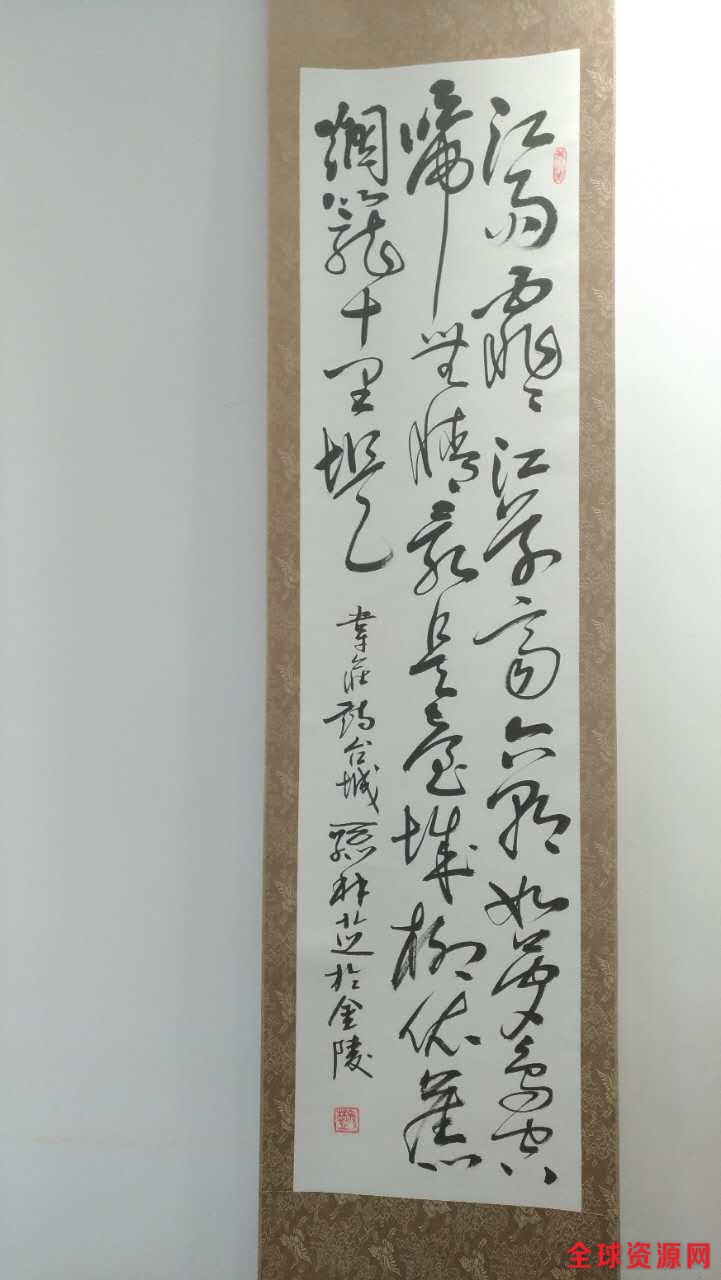 江雨霏〻江草齐六朝如梦鸟空
啼无情最是台城柳依旧
烟笼十里堤
韦庄诗台城 林 于金陵
全球资源网